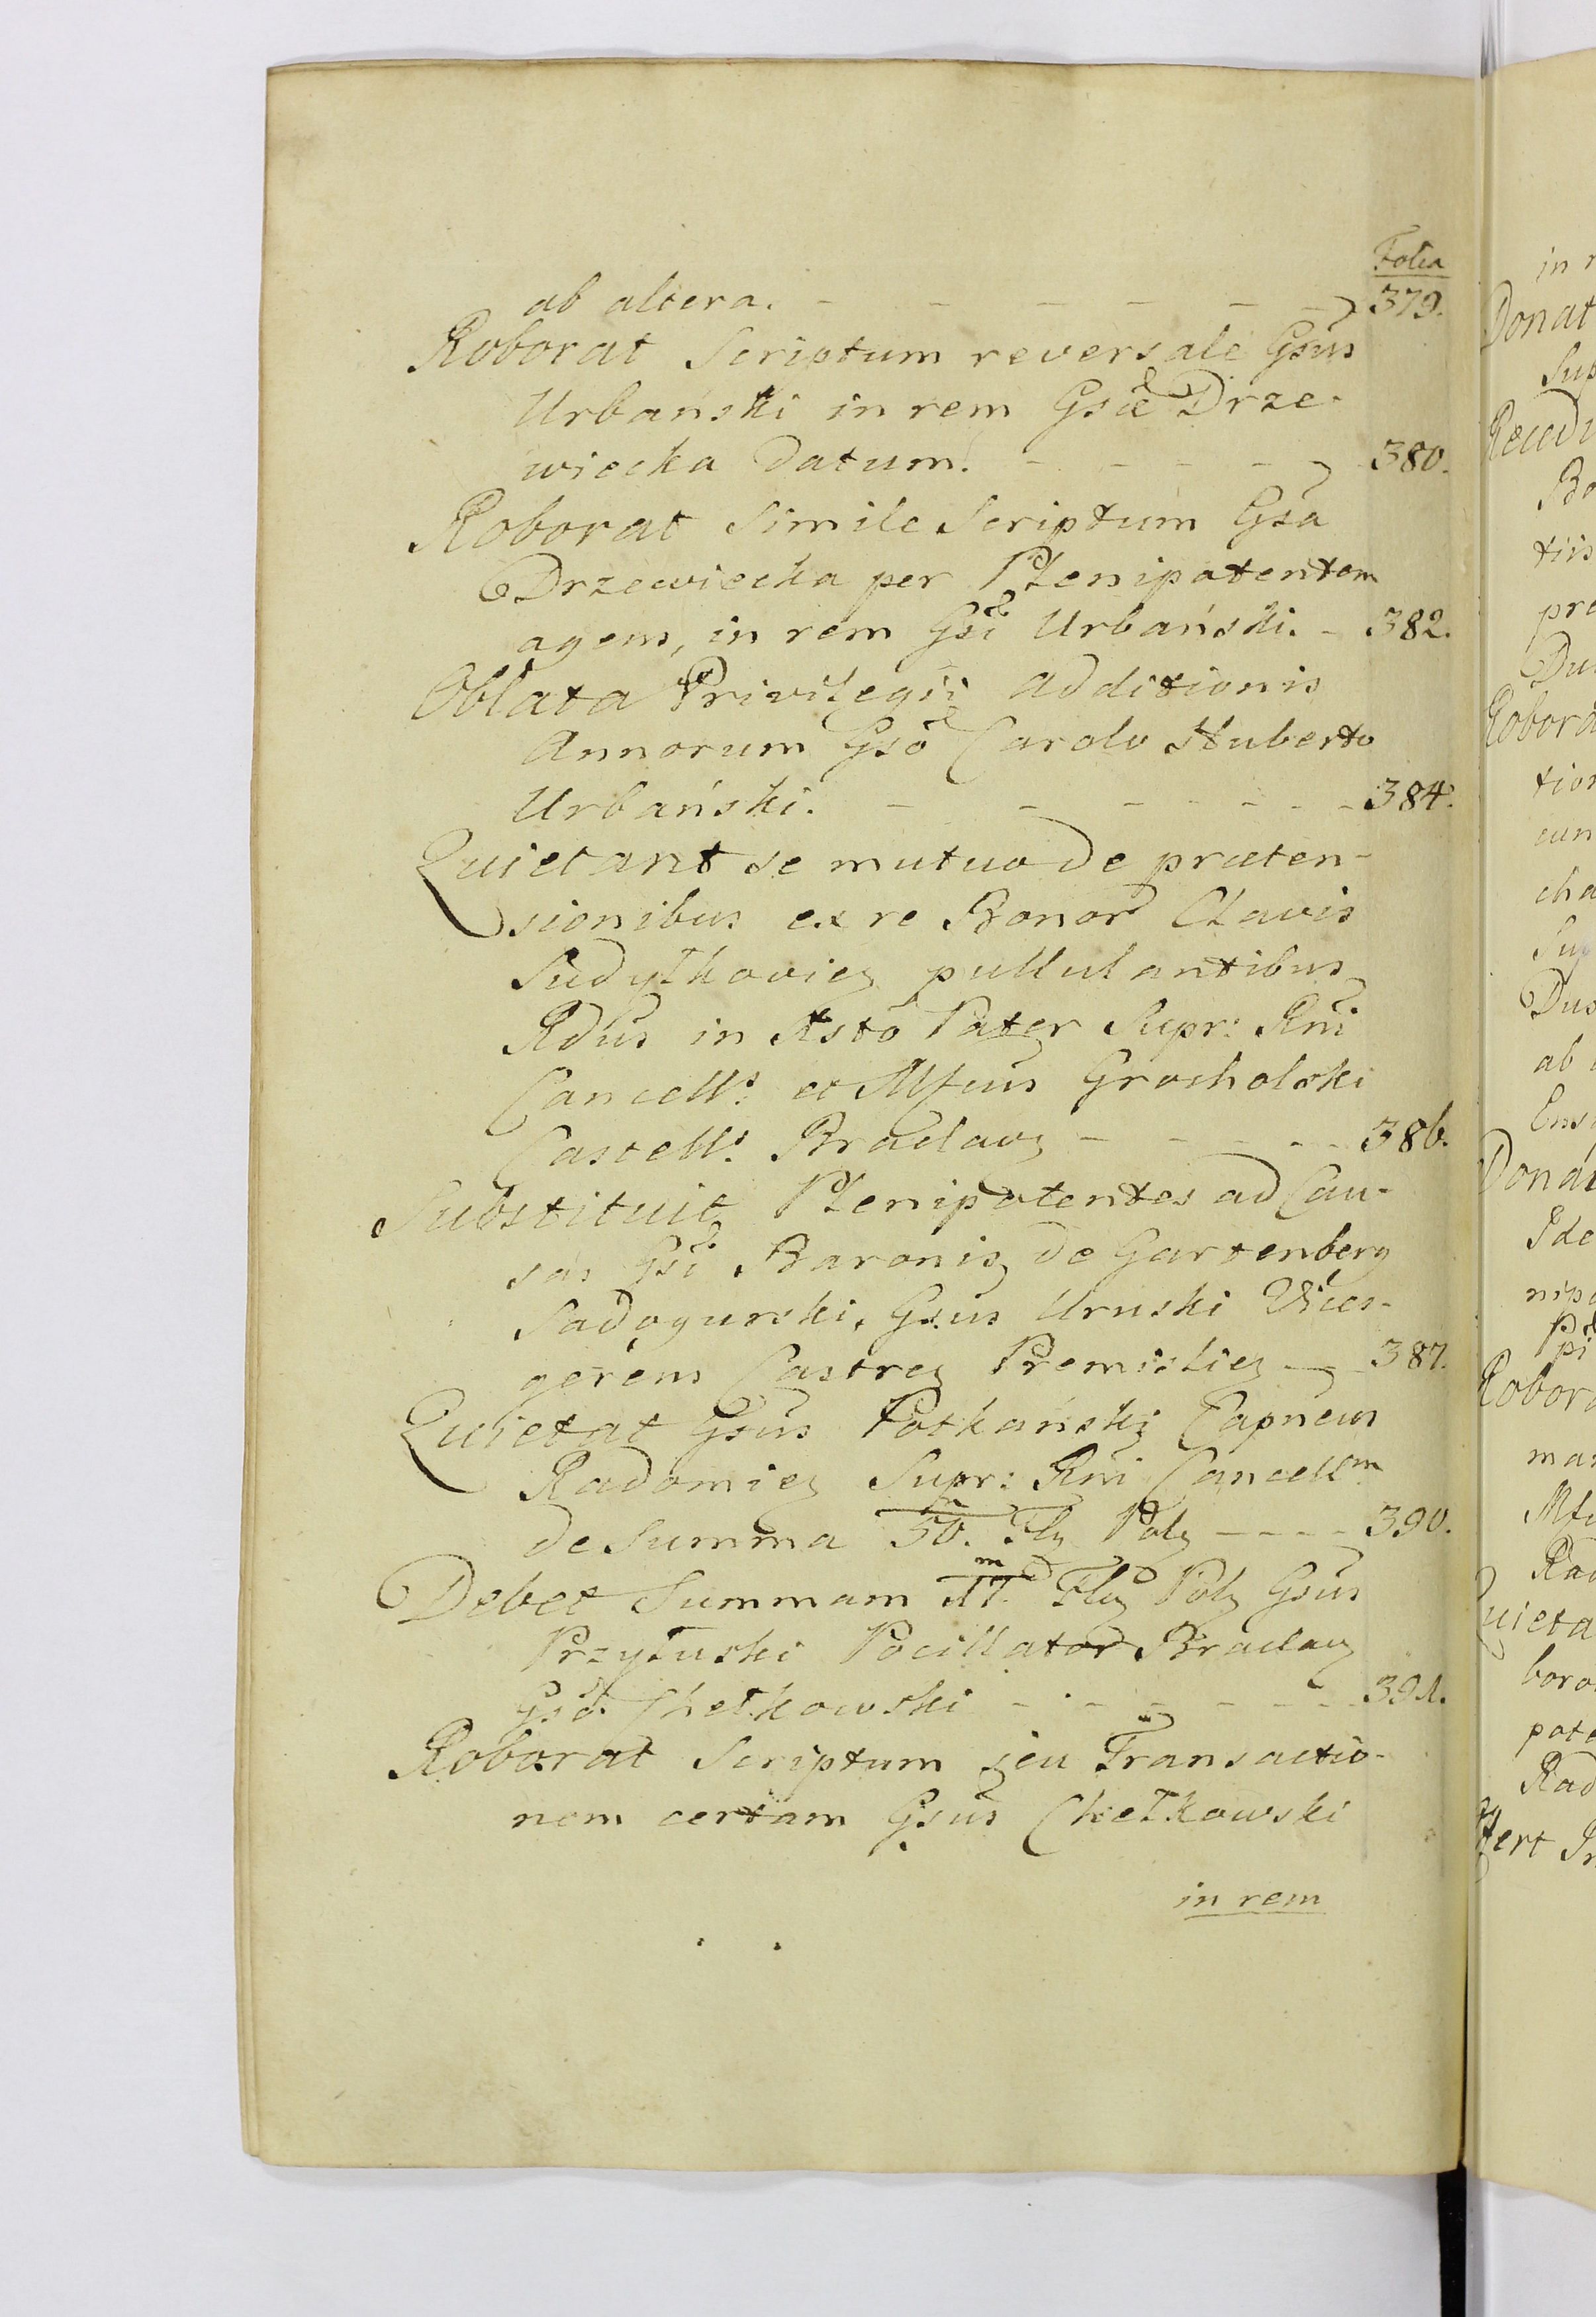 Folia
ab altera. - - - - - - 379.
Roborat Scriptum reversale Gsus
Urbański in rem Gsæ Drze-
wiecka datum. - - - - - 380.
Roborat simile Scriptum Gsa
Drzewiecka per Plenipotentem
agens, in rem Gsi Urbański. - 382.
Oblata Privilegii additionis
Annorum Gso Carolo Huberto
Urbański. - - - - - - - 384.
Quietant se mutuo de præten-
sionibus ex re Bonor Clavis
Sudyłkoviey pullulantibus
Rdus in Xsto Pater Supr: Rni
Cancells: et Mfcus Grocholski
Castells: Braclavy - - - - - 386.
Substituit Plenipotentes ad Cau-
sas Gsi Baronis de Gartenberg
Sadogurski, Gsus Uruski Vices-
gerens Castrey Premisliey - - 387.
Quietat Gsus Potkański Capneus
Radomiey Supr: Rni Cancellm
de Summa 50.m Fly Poly - - - - 390.
Debet Summam 17.m Fly Poly Gsus
Przyłuski Pocillator Braclavy
Gso. Chełkowski - - - - - - - 391.
Roborat Scriptum seu Transactio-
nem certam Gsus Chełkowski
in rem
in
Donat
Sup
Recedi
Bo
tiis
pro
Dus
Robora
tion
cun
cha
Sup
Dus
ab
Ens
Donat
Ide
nipo
pi
Robora
man
Mfc
Rad
Quieta
boro
pote
Rad
fert